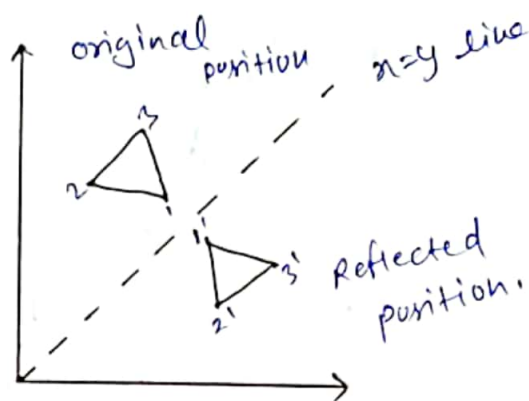 original
position
x=y line
3
2
1
1'
3'
2'
Reflected
position.